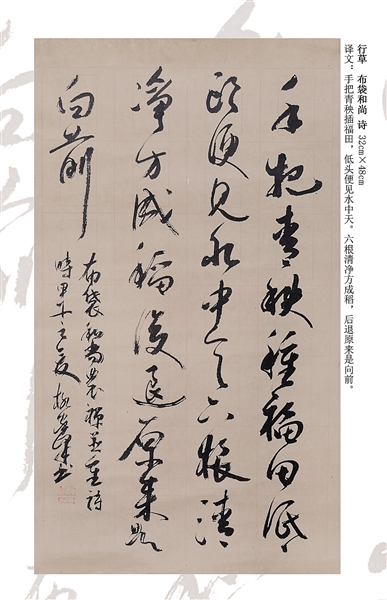 行草 布袋和尚 诗 32cm×48cm
译文：手把青秧插福田，低头便见水中天。六根清净方成稻，后退原来是向前。
手把青秧種福田低
头便见水中天六根清
净方成稻後退原来是
向前
布袋和尚農禅并重詩
時甲午之夏 书